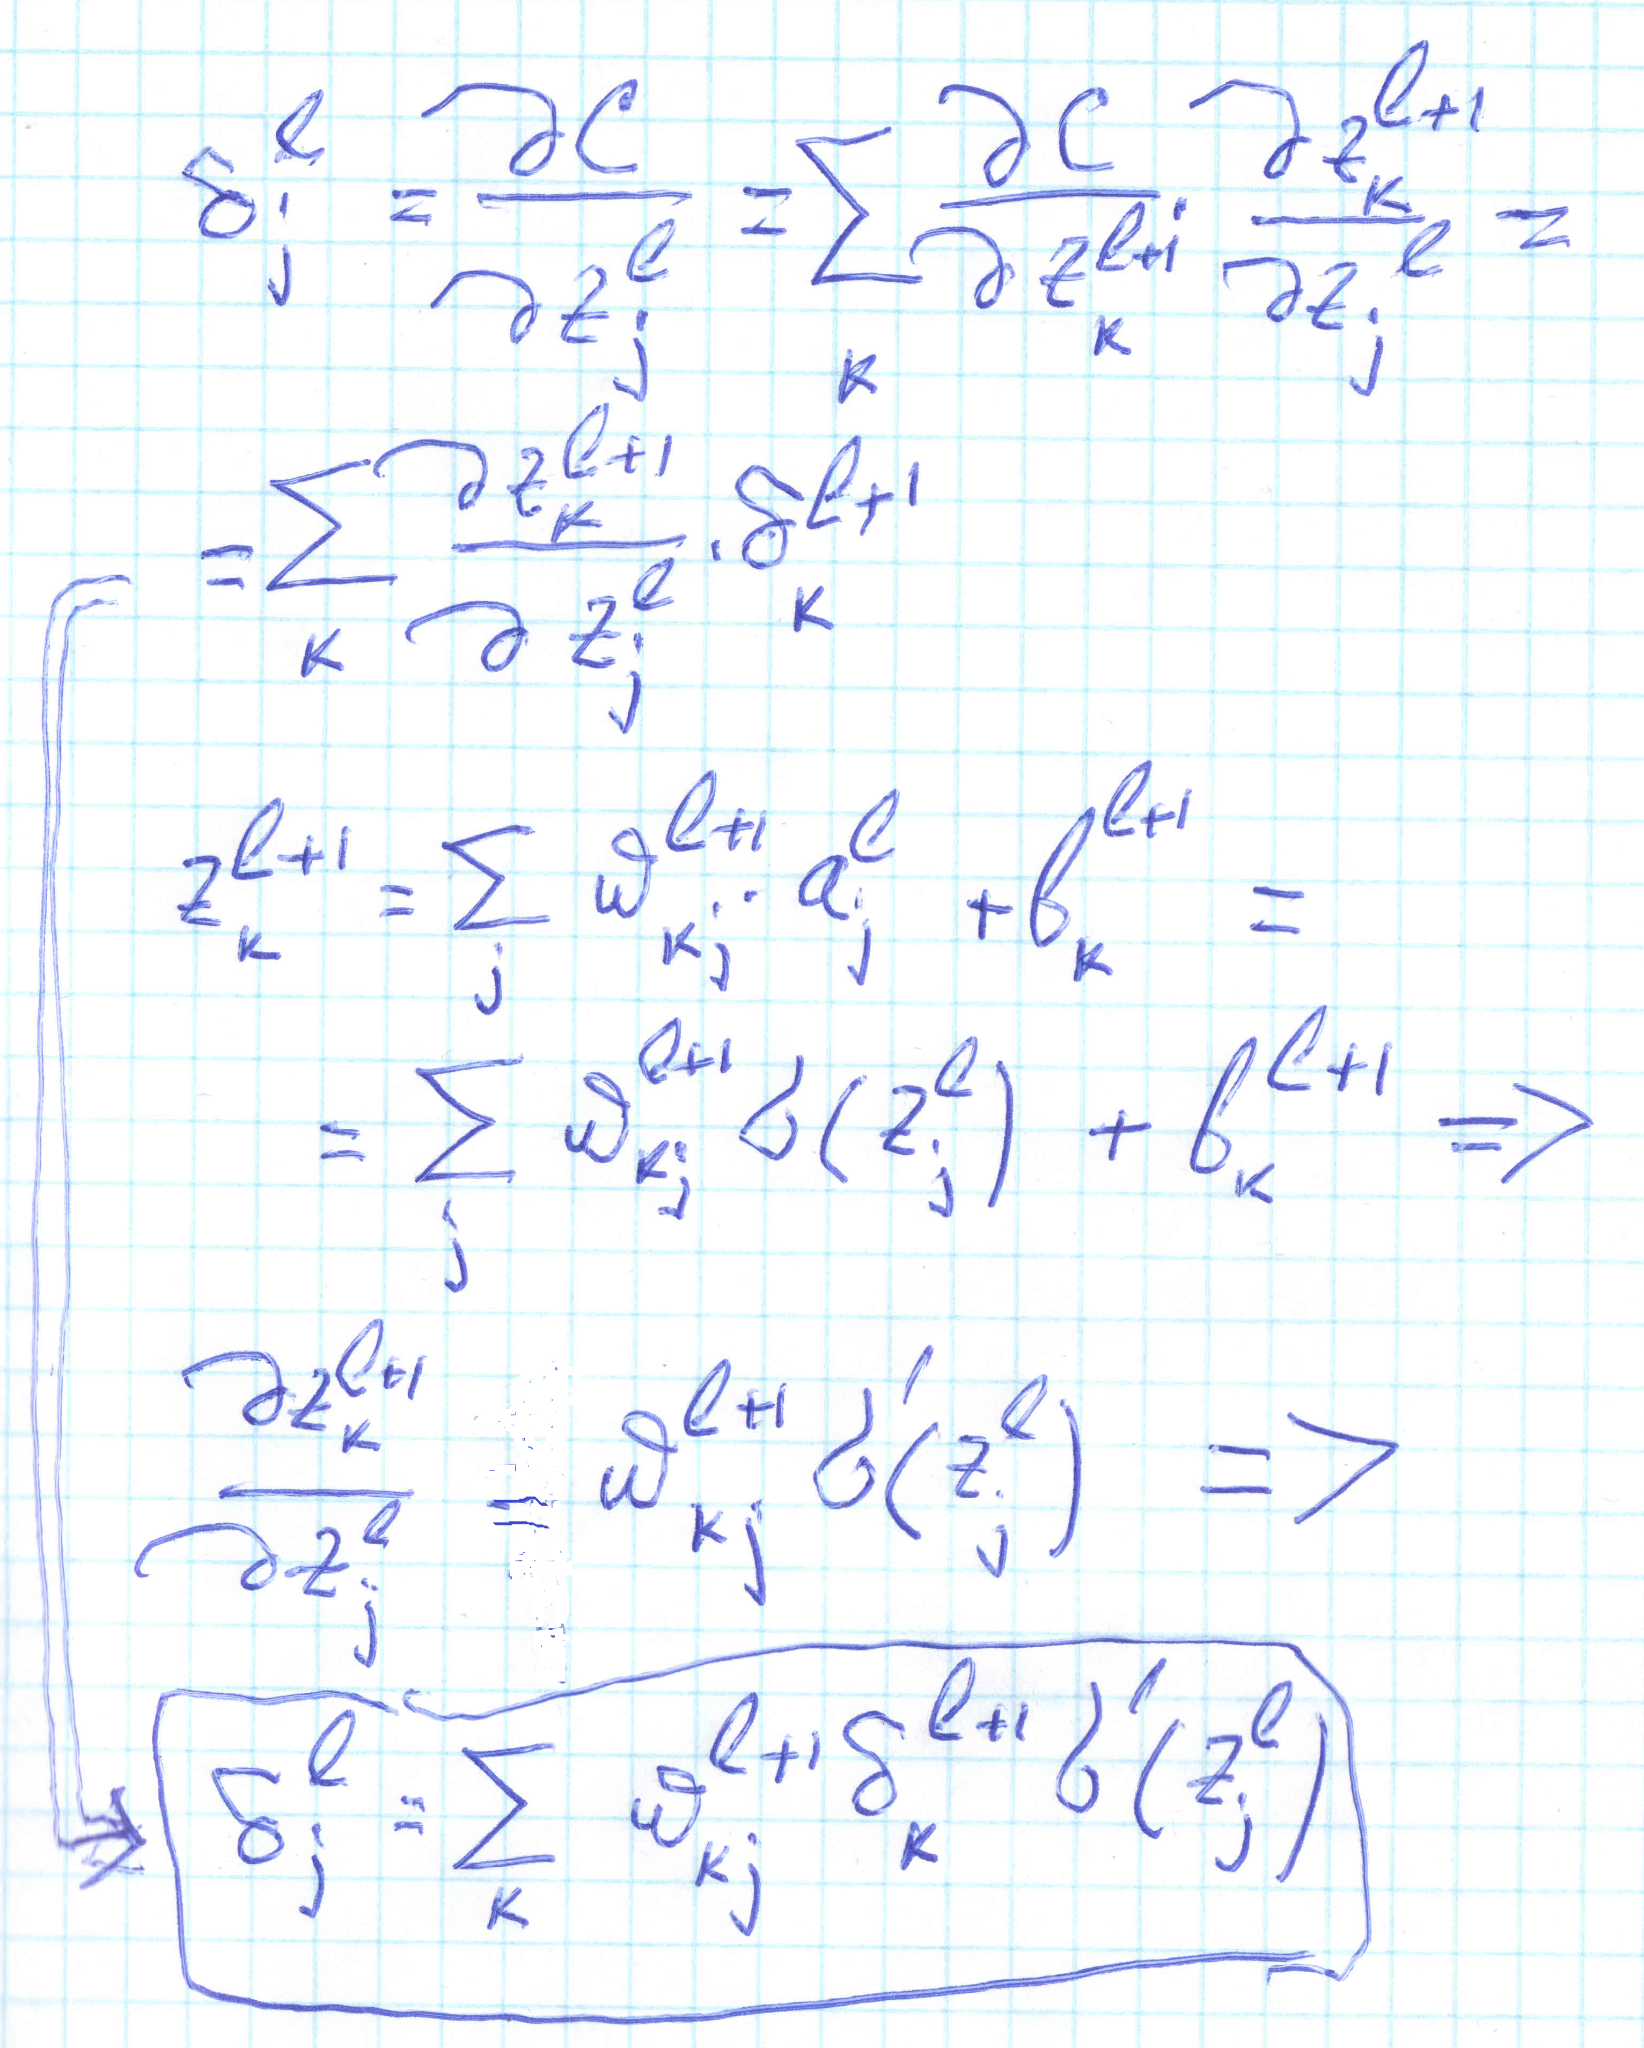 δ_j^l = ∂C/∂z_j^l = Σ_k ∂C/∂z_k^{l+1} · ∂z_k^{l+1}/∂z_j^l =
= Σ_k ∂z_k^{l+1}/∂z_j^l · δ_k^{l+1}
z_k^{l+1} = Σ_j w_{kj}^{l+1} · a_j^l + b_k^{l+1} =
= Σ_j w_{kj}^{l+1} σ(z_j^l) + b_k^{l+1} =>
∂z_k^{l+1}/∂z_j^l = w_{kj}^{l+1} σ'(z_j^l) =>
δ_j^l = Σ_k w_{kj}^{l+1} δ_k^{l+1} σ'(z_j^l)